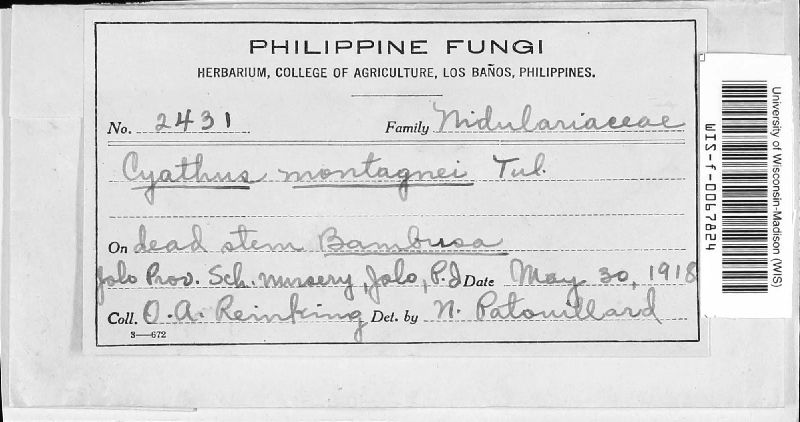 PHILIPPINE FUNGI
HERBARIUM, COLLEGE OF AGRICULTURE, LOS BAÑOS, PHILIPPINES.
No. 2431 Family Nidulariaceae
Cyathus montagnei Tul.
On dead stem Bambusa
Jolo Prov. Sch. nursery, Jolo, P.I Date May 30, 1918
Coll. O. A. Reinking Det. by N. Patouillard
3—672
University of Wisconsin-Madison (WIS)
WIS-f-0067824